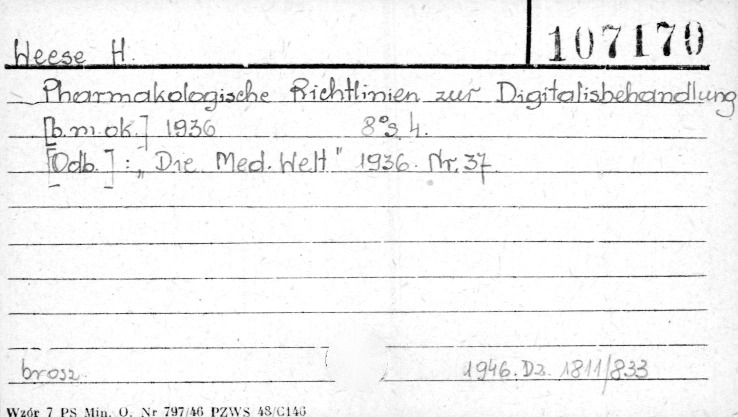 Weese H.
107170
Pharmakologische Richtlinien zur Digitalisbehandlung
[b.m.ok.] 1936 8° s. 4.
[Odb.]: „Die Med. Welt" 1936. Nr. 37.
brosz. 1946. Dz. 1811/833
Wzór 7 PS Min. O. Nr 797/46 PZWS 48/C146